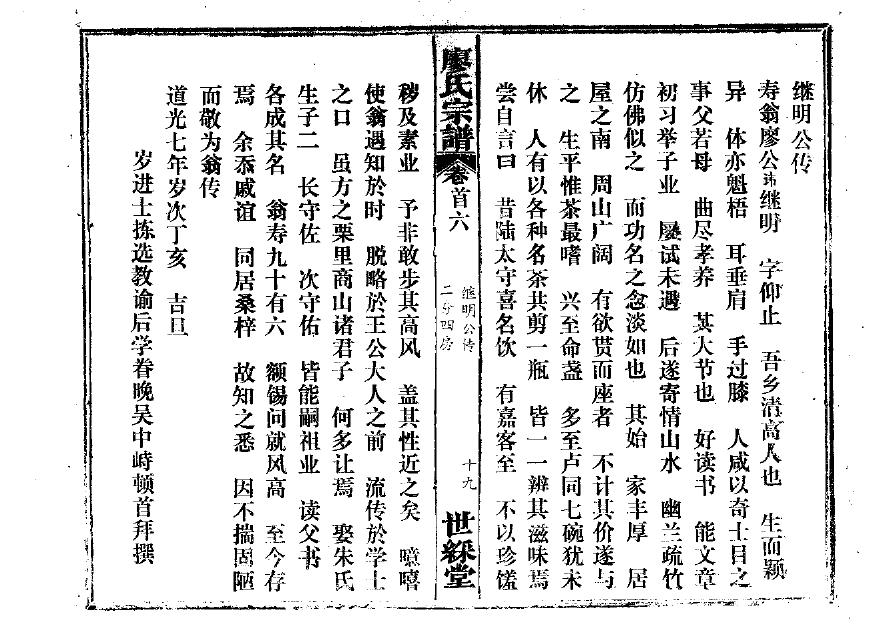 继明公传
寿翁廖公讳继明 字仰止 吾乡清高人也 生而颖
异 体亦魁梧 耳垂肩 手过膝 人咸以奇士目之
事父若母 曲尽孝养 其大节也 好读书 能文章
初习举子业 屡试未遇 后遂寄情山水 幽兰疏竹
仿佛似之 而功名之念淡如也 其始 家丰厚 居
屋之南 周山广阔 有欲贳而座者 不计其价遂与
之 生平惟茶最嗜 兴至命盏 多至卢同七碗犹未
休 人有以各种名茶共剪一瓶 皆一一辨其滋味焉
尝自言曰 昔陆太守喜名饮 有嘉客至 不以珍馐
廖氏宗譜
卷首六
继明公传
二分四房
十九
世綵堂
秽及素业 予非敢步其高风 盖其性近之矣 噫嘻
使翁遇知於时 脱略於王公大人之前 流传於学士
之口 虽方之栗里商山诸君子 何多让焉 娶朱氏
生子二 长守佐 次守佑 皆能嗣祖业 读父书
各成其名 翁寿九十有六 额锡问就风高 至今存
焉 余忝戚谊 同居桑梓 故知之悉 因不揣固陋
而敬为翁传
道光七年岁次丁亥 吉旦
岁进士拣选教谕后学眷晚吴中峙顿首拜撰